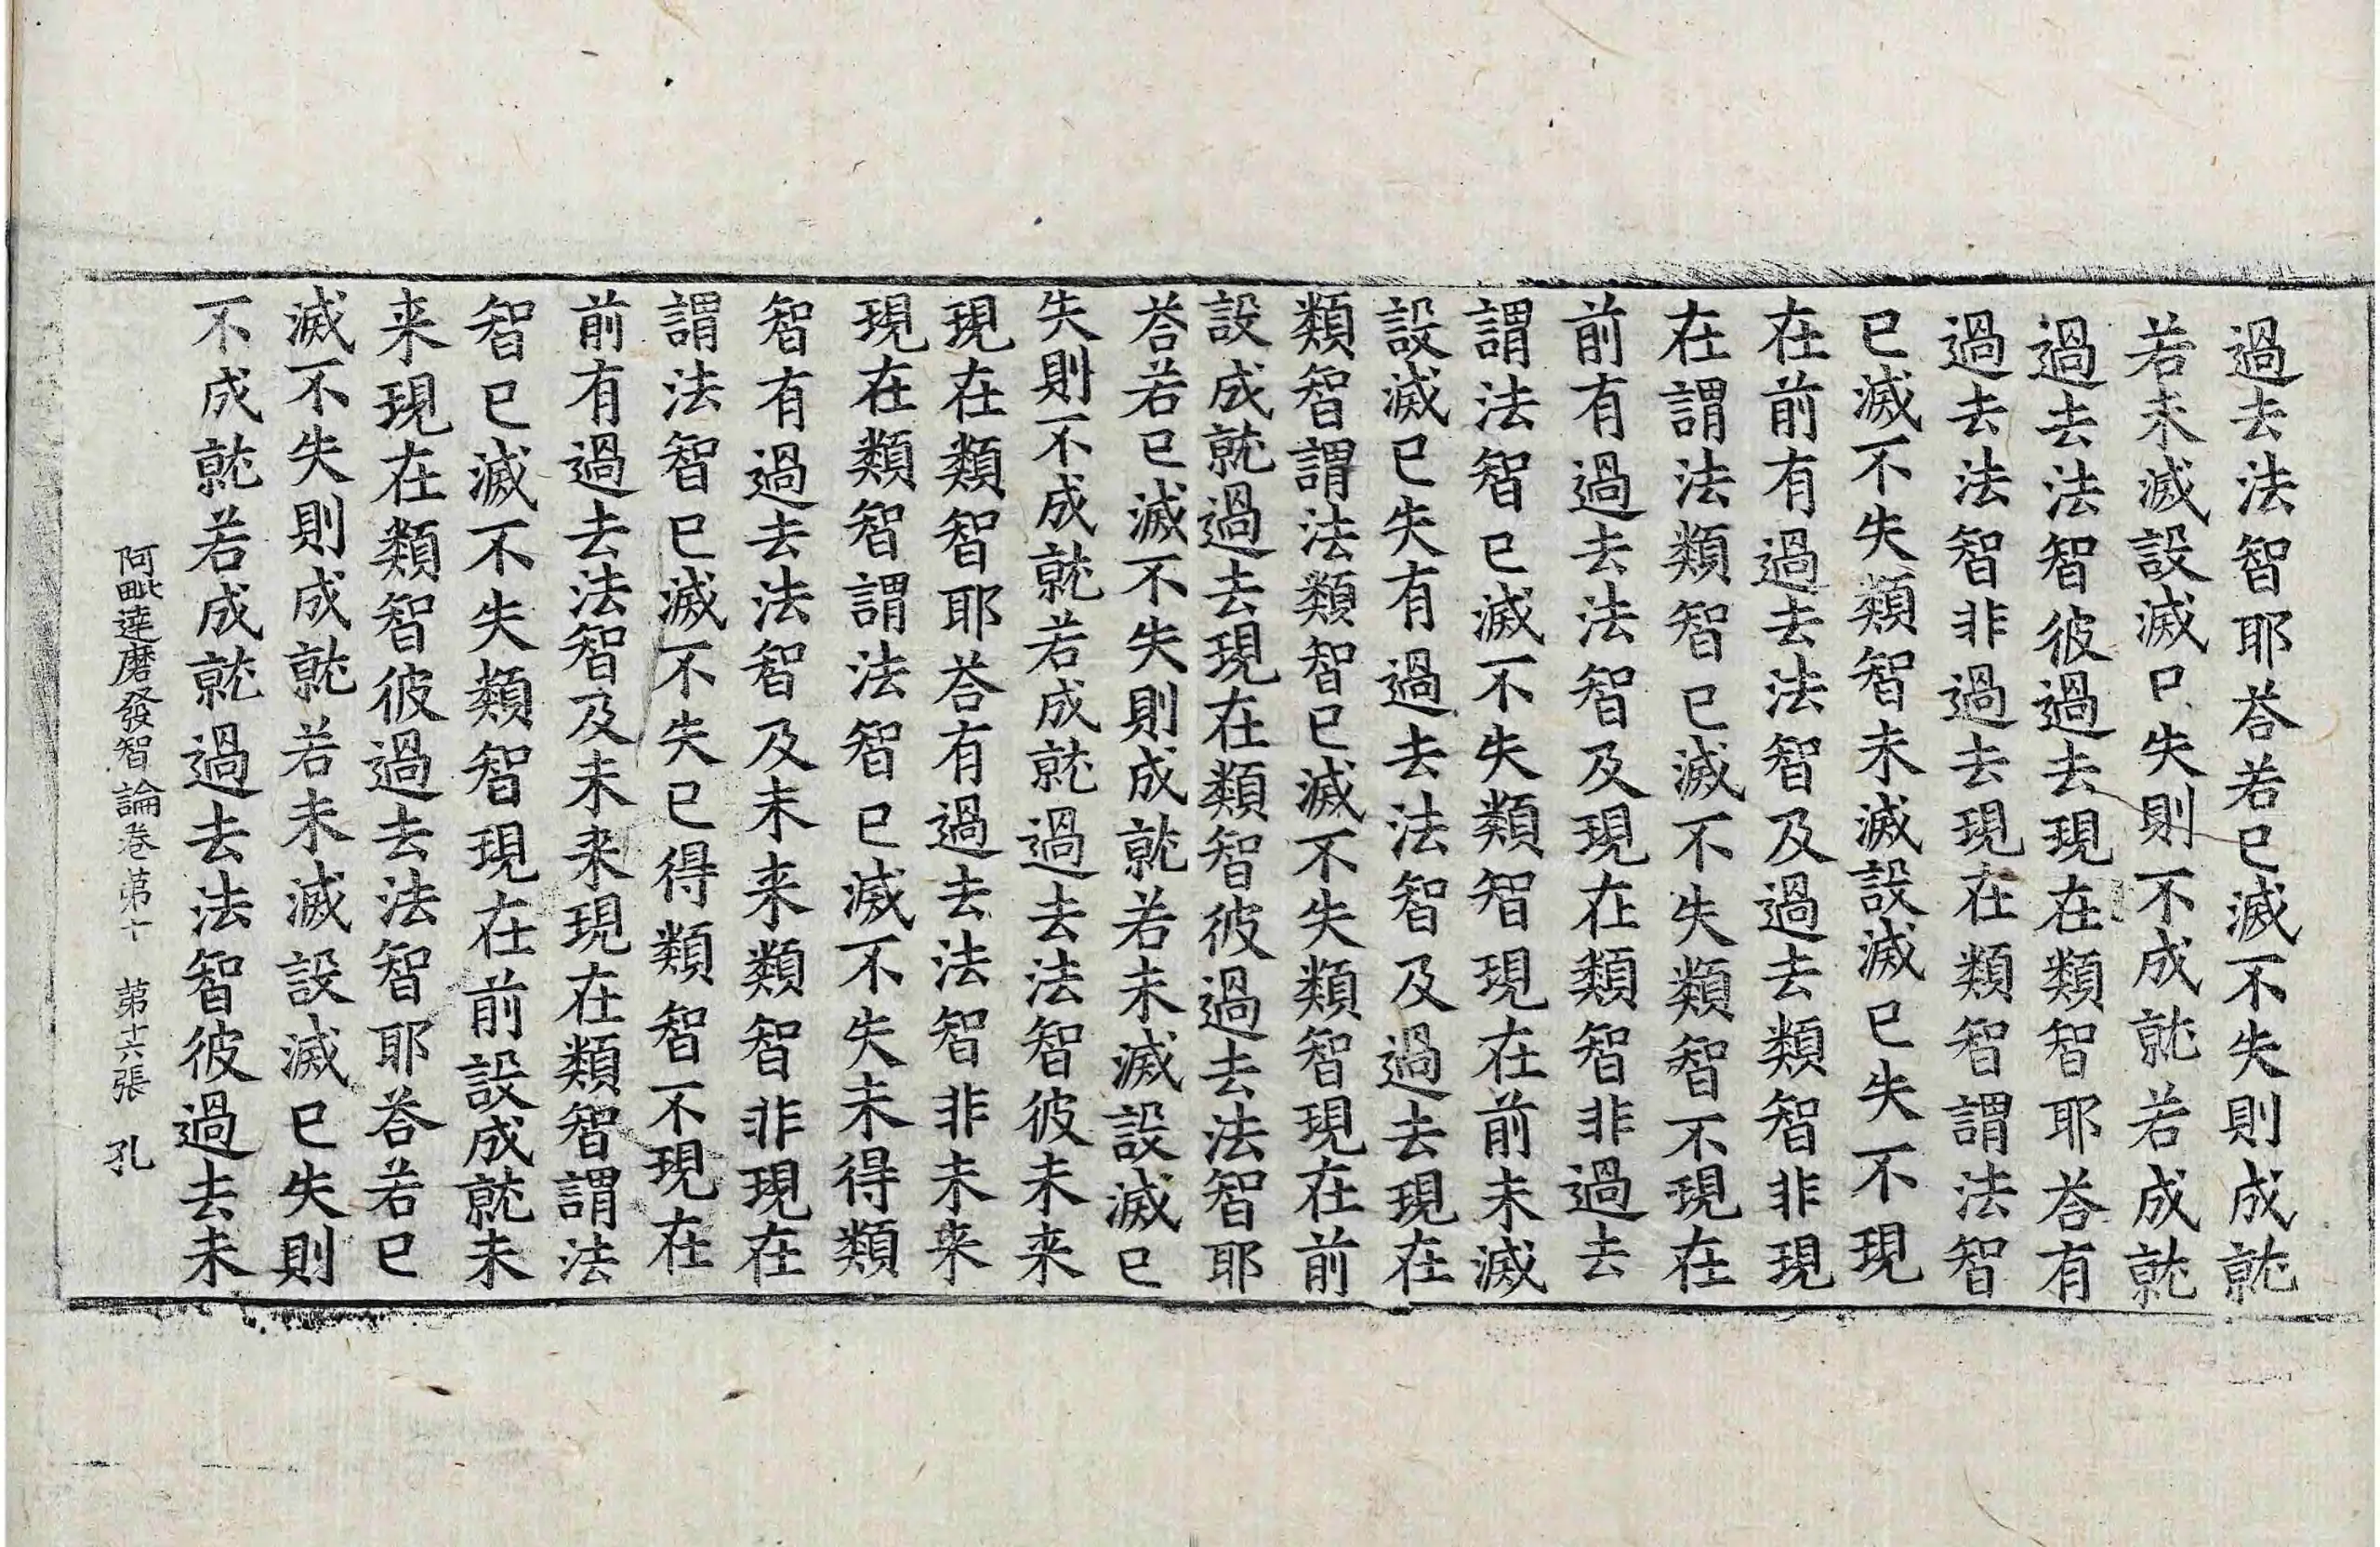 過去法智耶荅若已滅不失則成就
若未滅設滅已失則不成就若成就
過去法智彼過去現在類智耶荅有
過去法智非過去現在類智謂法智
已滅不失類智未滅設滅已失不現
在前有過去法智及過去類智非現
在謂法類智已滅不失類智不現在
前有過去法智及現在類智非過去
謂法智已滅不失類智現在前未滅
設滅已失有過去法智及過去現在
類智謂法類智已滅不失類智現在前
設成就過去現在類智彼過去法智耶
荅若已滅不失則成就若未滅設滅已
失則不成就若成就過去法智彼未来
現在類智耶荅有過去法智非未来
現在類智謂法智已滅不失未得類
智有過去法智及未来類智非現在
謂法智已滅不失已得類智不現在
前有過去法智及未来現在類智謂法
智已滅不失類智現在前設成就未
来現在類智彼過去法智耶荅若已
滅不失則成就若未滅設滅已失則
不成就若成就過去法智彼過去未
阿毗達磨發智論卷第十 第十六張 孔